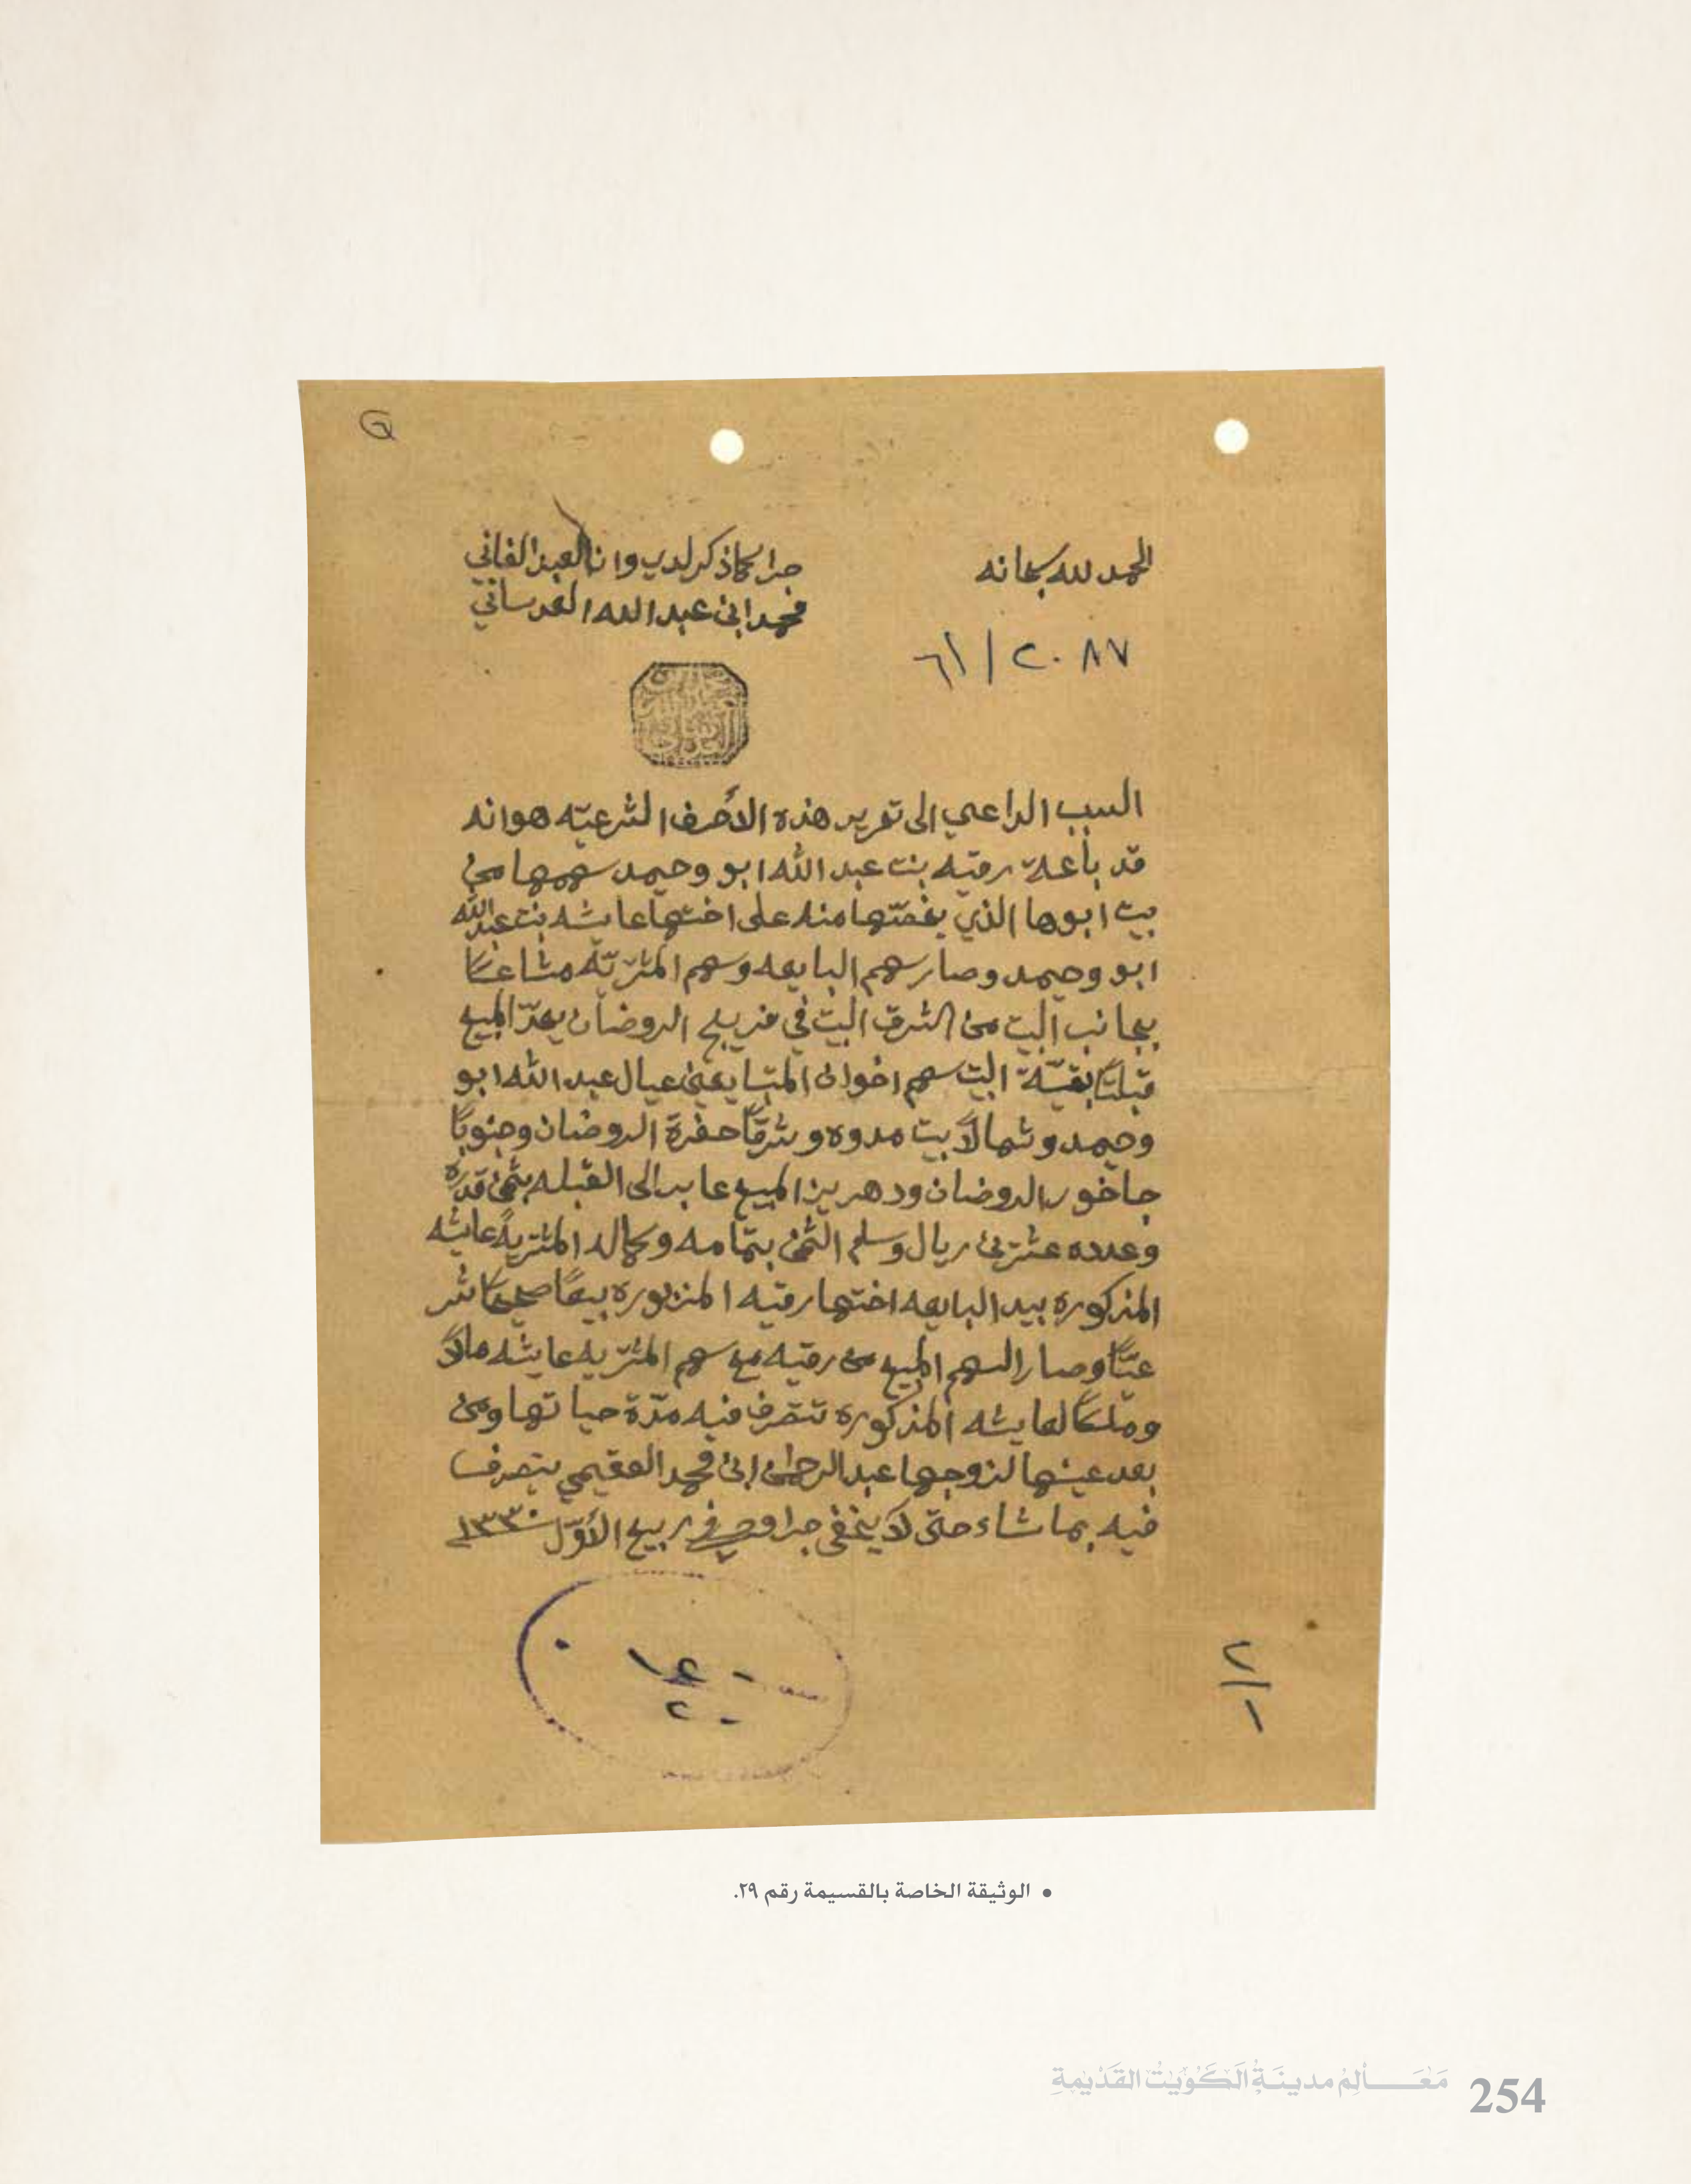 الحمد لله سبحانه
جرا كما ذكر لدي وانا العبد الفاني
محمد ابن عبدالله العدساني
٢٠٨٧ / ٦١
السبب الداعي الى تحرير هذه الأحرف الشرعيّه هو انه
قد باعة رقيه بنت عبد الله ابو وحيمد سهمها من
بيت ابوها الذي يخصّها منه على اختها عايشه بنت عبدالله
ابو وحيمد وصار سهم البايعه وسهم المشتريّه مشاعًا
بجانب البيت من الشرق البيت في فريج الروضان يحدّ المبيع
قبلتًا بقيّة البيت سهم اخوان المتبايعين عيال عبد الله ابو
وحيمد وشمالاً بيت مدوه وشرقًا حفرة الروضان وجنوبًا
جاخور الروضان ودهريز المبيع عابر الى القبله بثمن قدره
وعدده عشرين ريال وسلم الثمن بتمامه وكماله المشتريةً عايشه
المذكوره بيد البايعه اختها رقيه المزبوره بيعًا صحيحًا شر
عيًّا وصار السهم المبيع من رقيه مع سهم المشتريه عايشه مالاً
وملكًا لعايشه المذكوره تتصرف فيه مدّة حياتها ومن
بعد عينها لزوجها عبدالرحمن ابن محمد العقيمي يتصرف
فيه بما شاء حتى لا يخفى جرا وحرر في ربيع الأوّل ١٣٣٠
٢/١
• الوثيقة الخاصة بالقسيمة رقم ٢٩.
مَعَـالِمُ مدينَةُ الكُوَيْتُ القَدْيمَةِ 254